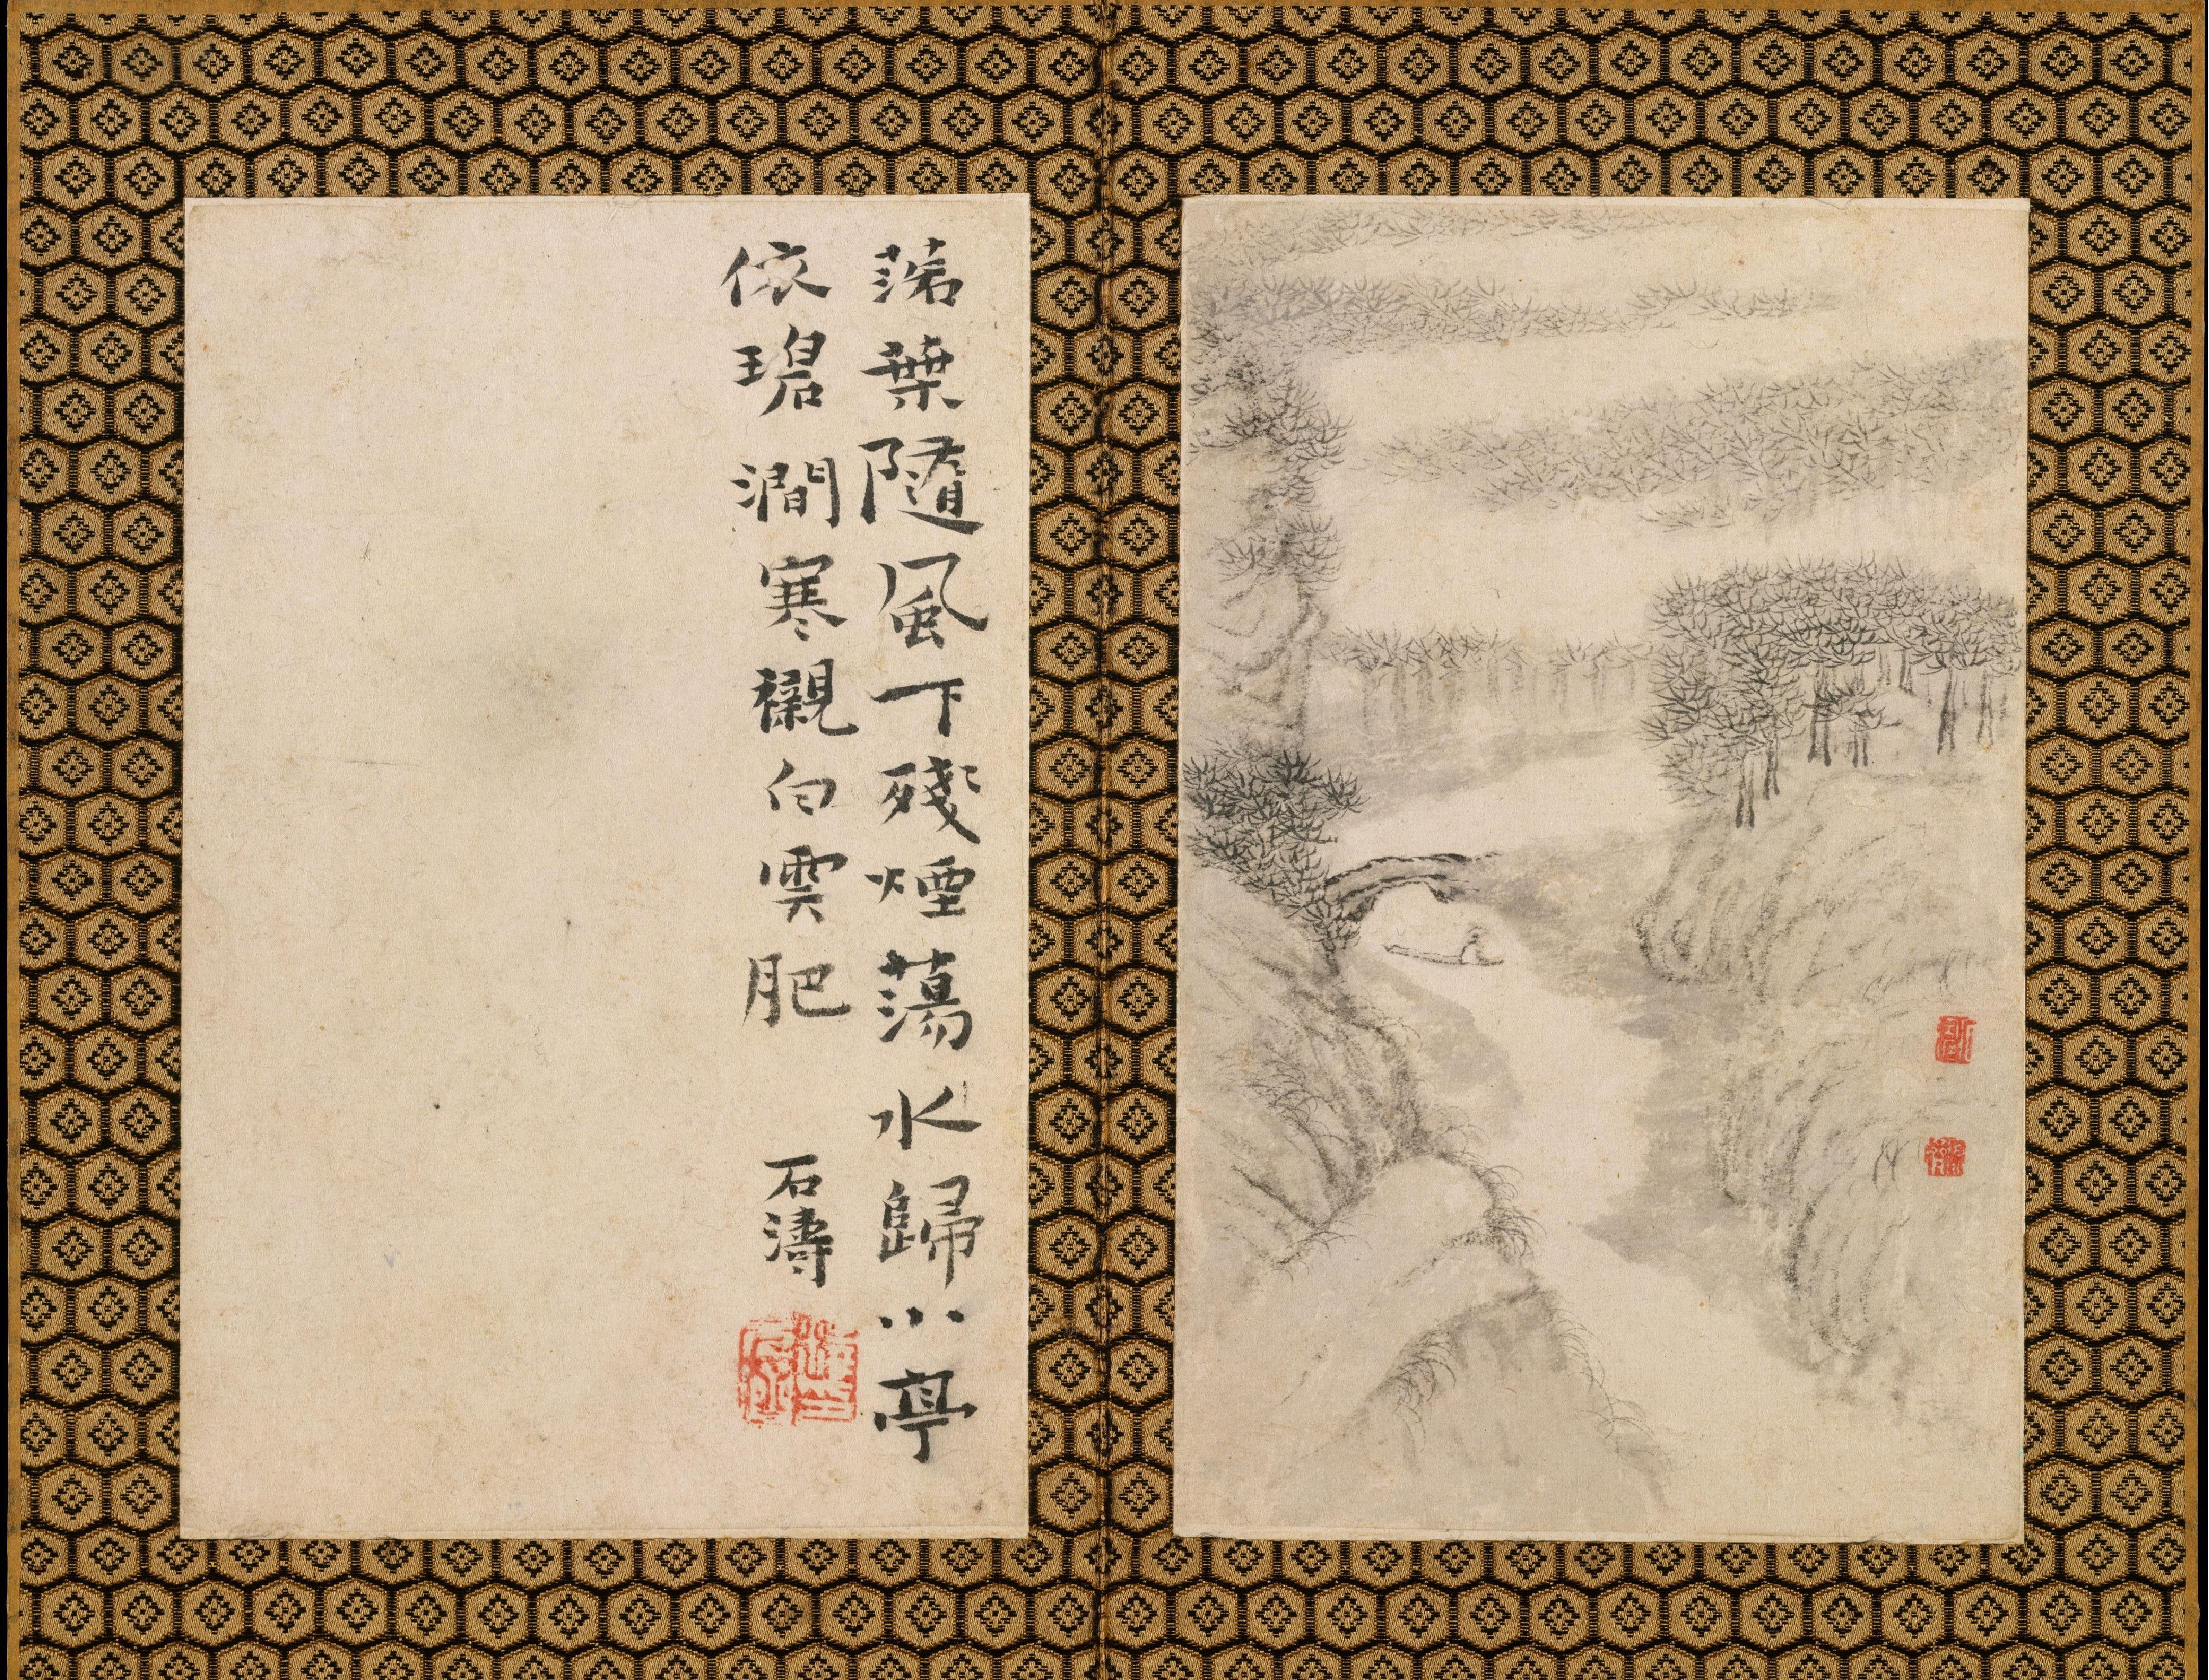 落葉隨風下殘煙蕩水歸小亭
依碧澗寒襯白雲肥
石濤